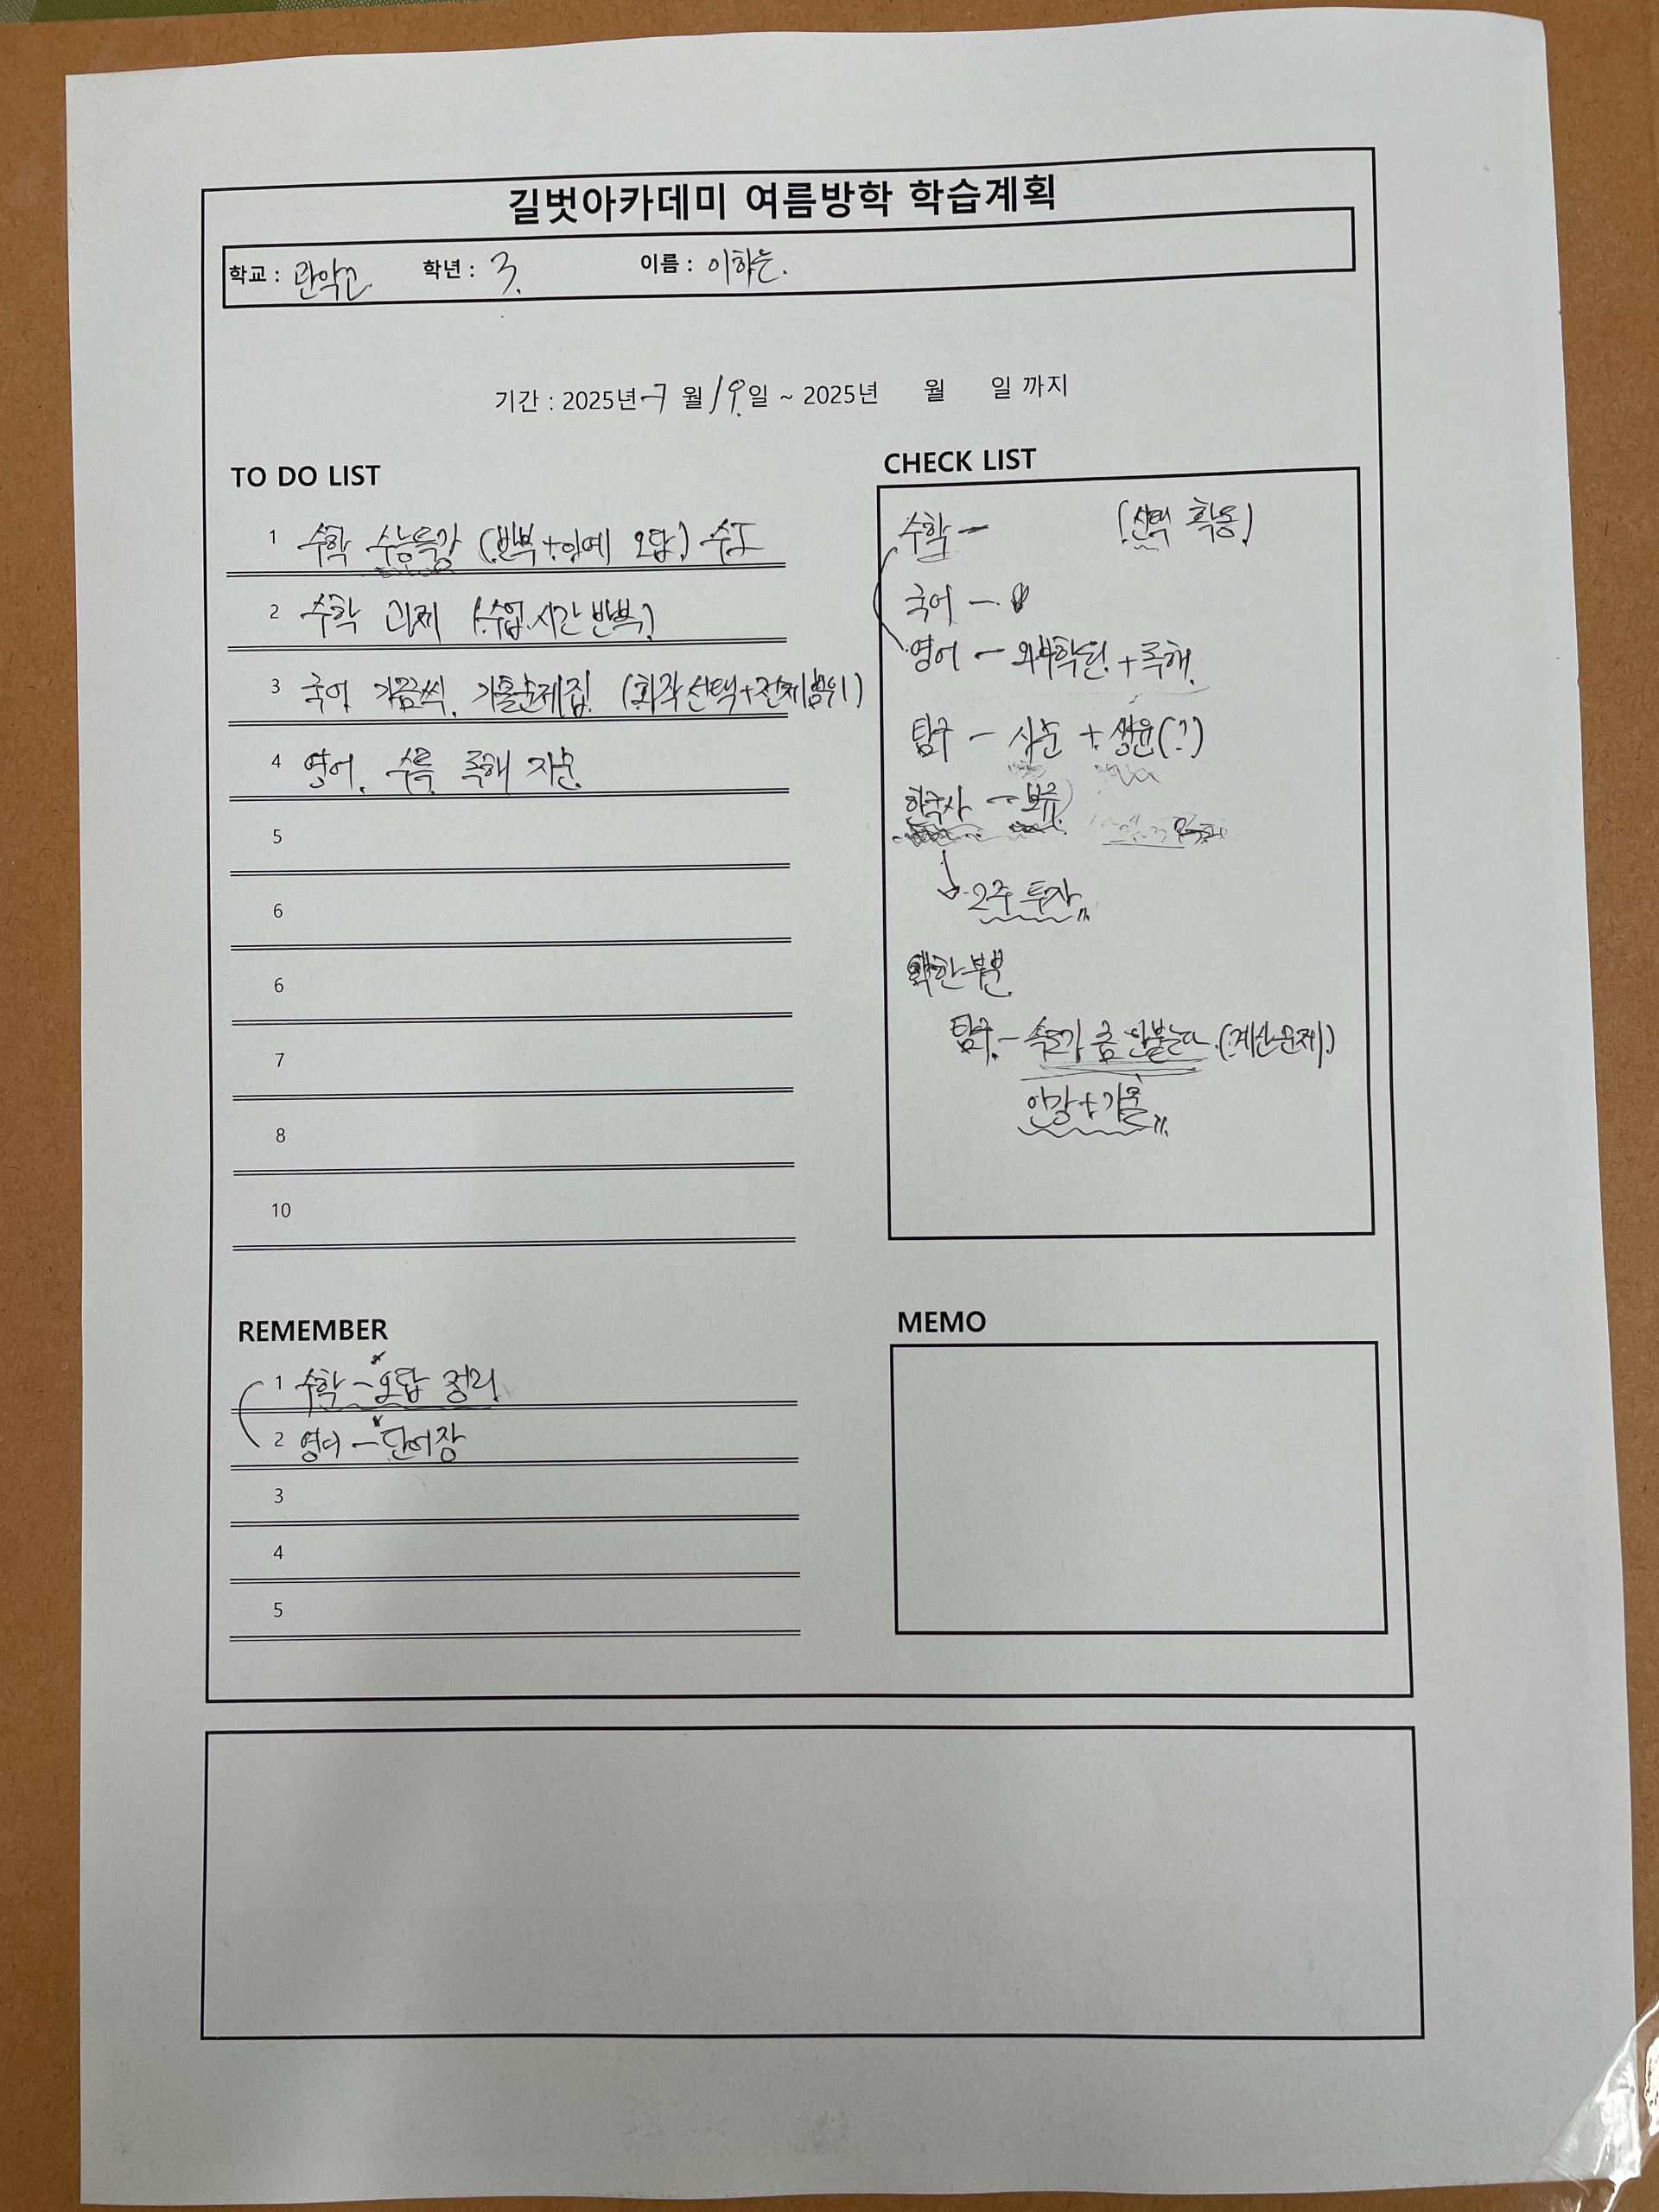 길벗아카데미 여름방학 학습계획
학교 : 관악고 학년 : 3. 이름 : 이하은.
기간 : 2025년 7 월 19. 일 ~ 2025년 월 일 까지
TO DO LIST
1 수학 수능특강 (반복 + 오답)
2 수학 과제 (수업.시간 반복)
3 국어 가끔씩. 기출문제집. (화작 선택+전체범위)
4 영어. 수특 독해 지문.
5
6
6
7
8
10
CHECK LIST
수학 - (선택 확통)
국어 -
영어 - 외부학원. + 독해.
탐구 - + 생윤(?)
한국사 - 보류
2주 투자
약한부분
탐구. - 속도가 좀 안붙는다. (계산문제)
인강+기출
REMEMBER
1 수학 - 오답 정리.
2 영어 - 단어장
3
4
5
MEMO